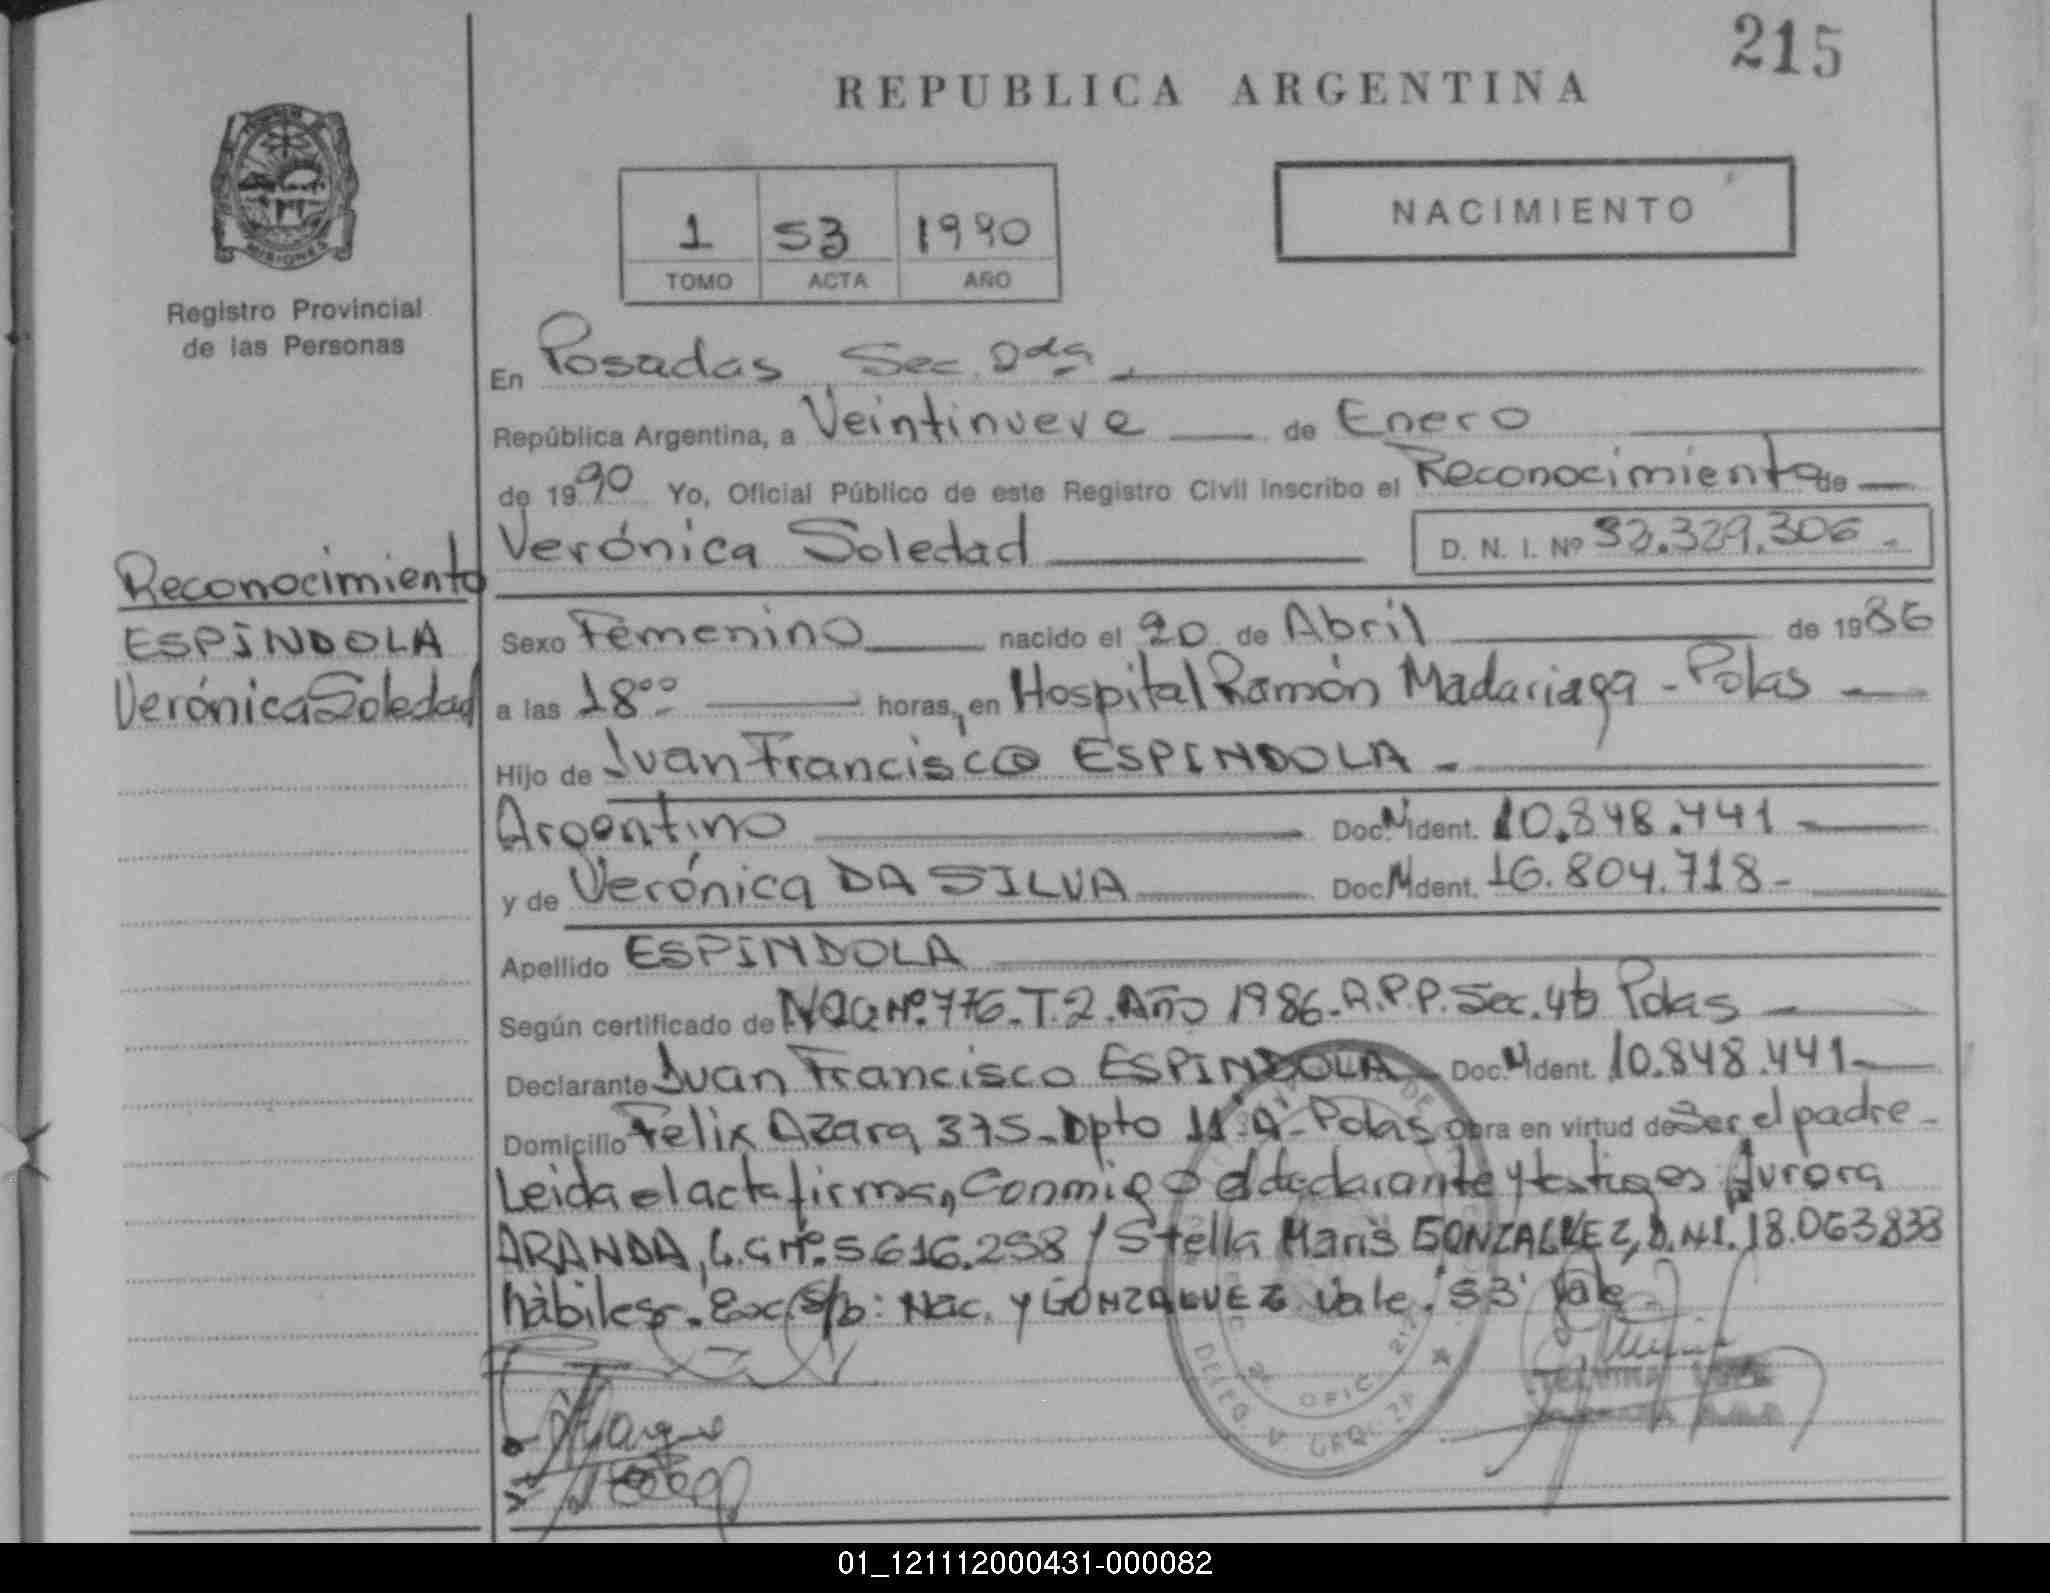 215
REPUBLICA ARGENTINA
1 53 1990
TOMO ACTA AÑO
NACIMIENTO
MISIONES
Registro Provincial
de las Personas
En Posadas Sec. 2da
República Argentina, a Veintinueve de Enero
de 1990 Yo, Oficial Público de este Registro Civil inscribo el Reconocimiento de
Verónica Soledad D. N. I. Nº 32.329.306
Reconocimiento
ESPÍNDOLA
Verónica Soledad
Sexo Femenino nacido el 20 de Abril de 1986
a las 18⁰⁰ horas, en Hospital Ramón Madariaga - Pdas
Hijo de Juan Francisco ESPINDOLA
Argentino Doc. M ident. 10.848.441
y de Verónica DA SILVA Doc M dent. 16.804.718
Apellido ESPINDOLA
Según certificado de Nac Nº. 776. T. 2. Año 1986. R.P.P. Sec. 4ta Pdas
Declarante Juan Francisco ESPINDOLA Doc. M dent. 10.848.441
Domicilio Felix Azara 375 - Dpto 11 "A" - Pdas obra en virtud de Ser el padre
Leida el acta firman Conmigo el declarante y testigos Aurora
ARANDA, L.C Nº. 5.616.258 / Stella Maris GONZALVEZ, D.N.I. 18.063.833
hábiles. s/b: Nac. y GONZALVEZ Vale. "53" Vale
OFIC. 212
01_121112000431-000082